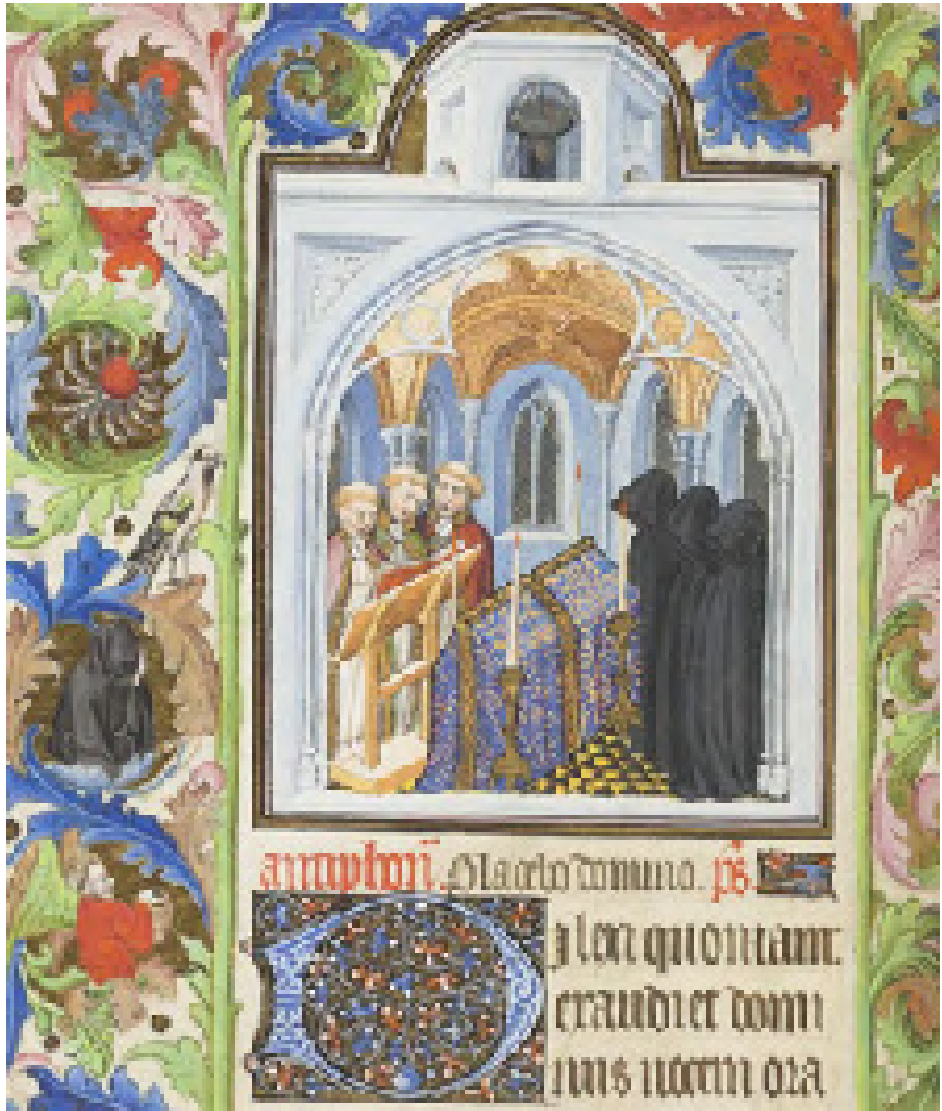 antiphoñ. Placebo domino. ps̄.
Dilexi quoniam
exaudiet domi
nus uocem ora